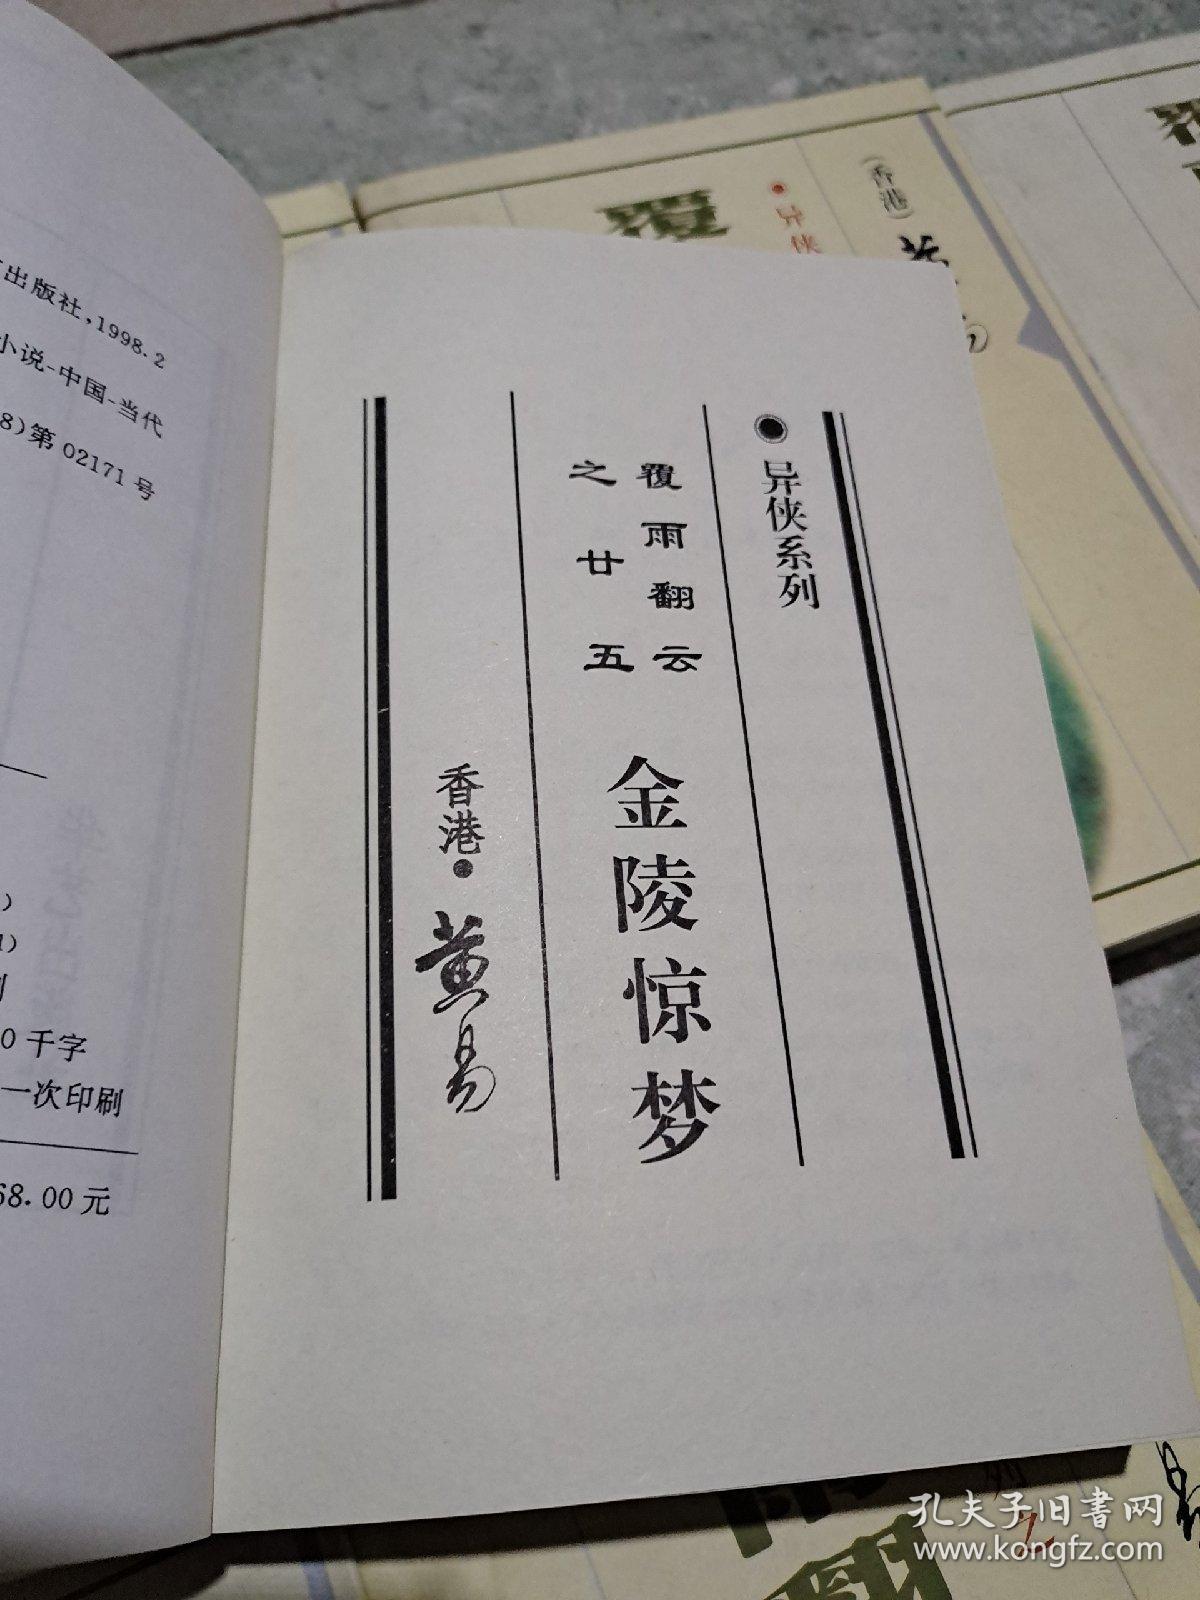 出版社,1998.2
小说-中国-当代
8)第02171号
0千字
一次印刷
68.00元
异侠系列
覆雨翻云
之廿五
金陵惊梦
香港·黄易
覆
异侠
(香港)
孔夫子旧书网
www.kongfz.com